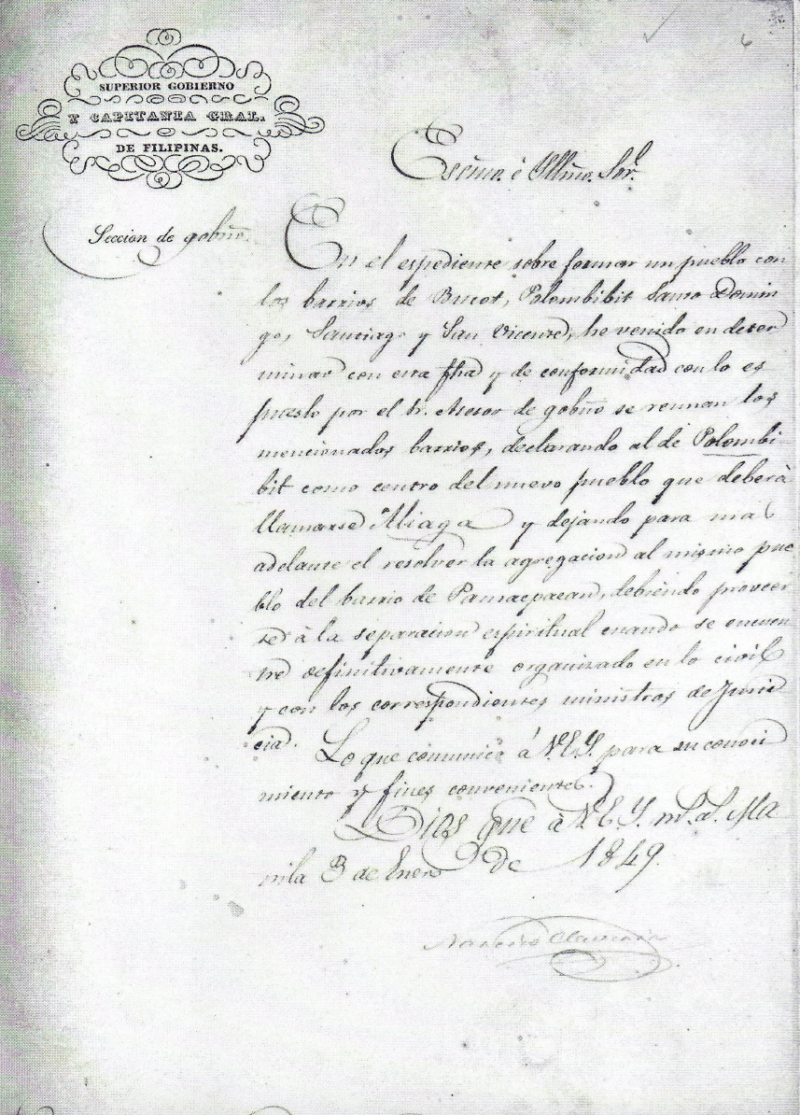 6
SUPERIOR GOBIERNO
Y CAPITANIA GRAL.
DE FILIPINAS.
Escmo. é Illmo. Sor.
Seccion de gobño.
En el espediente sobre formar un pueblo con
los barrios de Bucot, Polombibit Santo Domin
go, Santiago y San Vicente, he venido en deter
minar con esta fha y de conformidad con lo es
puesto por el Sr. Asesor de gobño se reunan los
mencionados barrios, declarando al de Polombi-
bit como centro del nuevo pueblo que deberá
llamarse Aliaga y dejando para mas
adelante el resolver la agregacion al mismo pue
blo del barrio de Pamacpacan, debiendo proveer
se à la separacion espiritual cuando se encuen
tre definitivamente organizado en lo civil
y con los correspondientes ministros de Justi
cia.
Lo que comunico á V.E.Y. para su conoci
miento y fines convenientes.
Dios gue à V.E.Y. ms. as. Ma
nila 3 de Enero de 1849.
Narciso Claveria